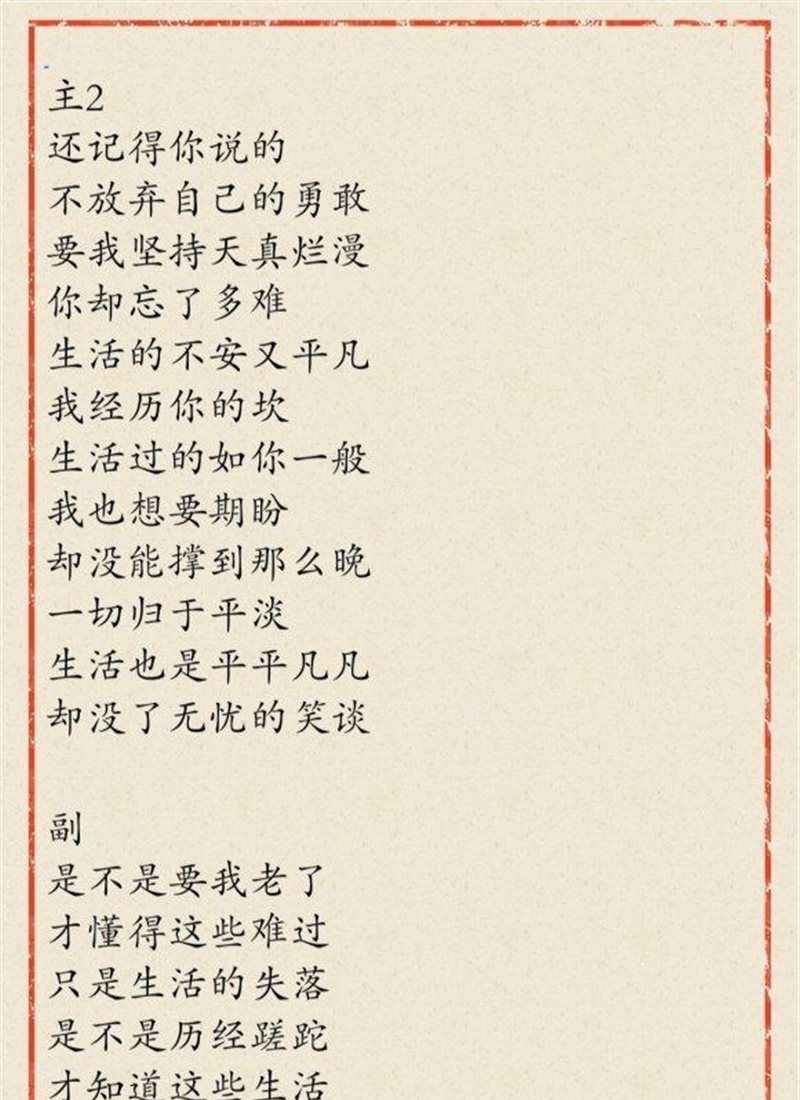 主2
还记得你说的
不放弃自己的勇敢
要我坚持天真烂漫
你却忘了多难
生活的不安又平凡
我经历你的坎
生活过的如你一般
我也想要期盼
却没能撑到那么晚
一切归于平淡
生活也是平平凡凡
却没了无忧的笑谈
副
是不是要我老了
才懂得这些难过
只是生活的失落
是不是历经蹉跎
才知道这些生活